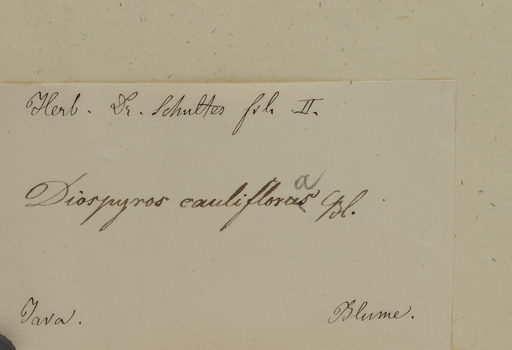 Herb. Dr. Schultes fil. II.
Diospyros cauliflorus a Bl.
Java. Blume.